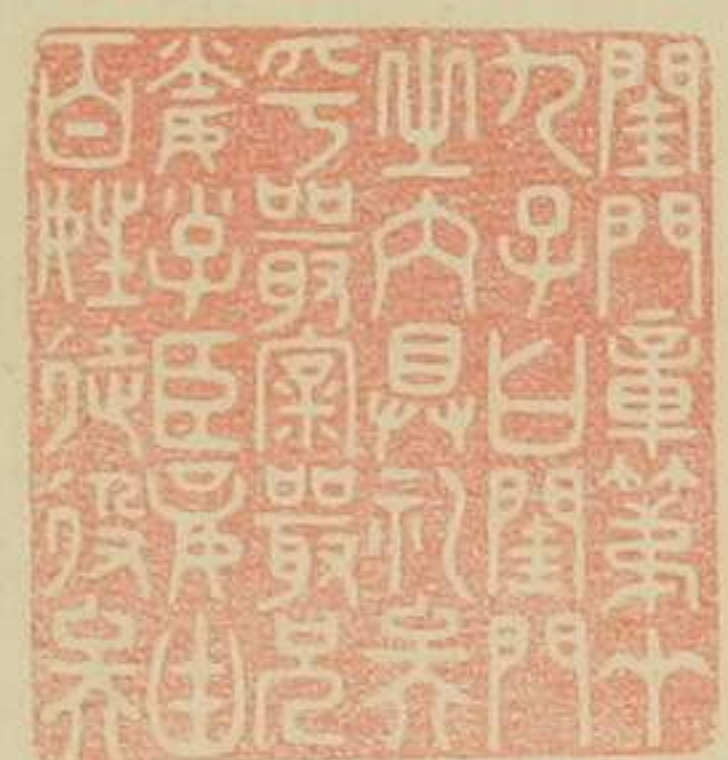 閨門章第十
九子曰閨門
之內具礼矣
乎嚴親嚴兄
妻子臣妾由
百姓徒役矣